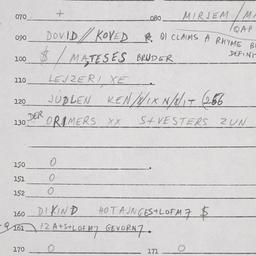 070 + 080 MIRJEM / M
090 DOVID // KOVED
DI CLAIMS A RHYME
100 $ / MATESES BRUDER DEFINI
110 LEJZERI, XE
120 JUDLEN KEN
130 DER ORIMERS XX S+VESTERS ZUN
150 O
151 O
152 O
160 DI KIND HOTAJNGES+LOFM7 $
161 IZ A+S+LOFM7 GEVORN7
170 O 171 O